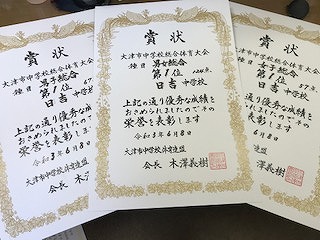 賞状
大津市中学校総合体育大会
種目 男子総合
第1位 67
日吉 中学校
上記の通り優秀な成績を
おさめられましたのでその
栄誉を表彰します
令和3年6月8日
大津市中学校体育連盟
会長 木澤
賞状
大津市中学校総合体育大会
種目 男女総合
第1位 124点
日吉 中学校
上記の通り優秀な成績を
おさめられましたのでその
栄誉を表彰します
令和3年6月8日
大津市中学校体育連盟
会長 木澤義樹
賞状
中学校総合体育大会
女子総合
第1位 57点
日吉 中学校
通り優秀な成績を
られましたのでその
表彰します
年6月8日
連盟
澤義樹